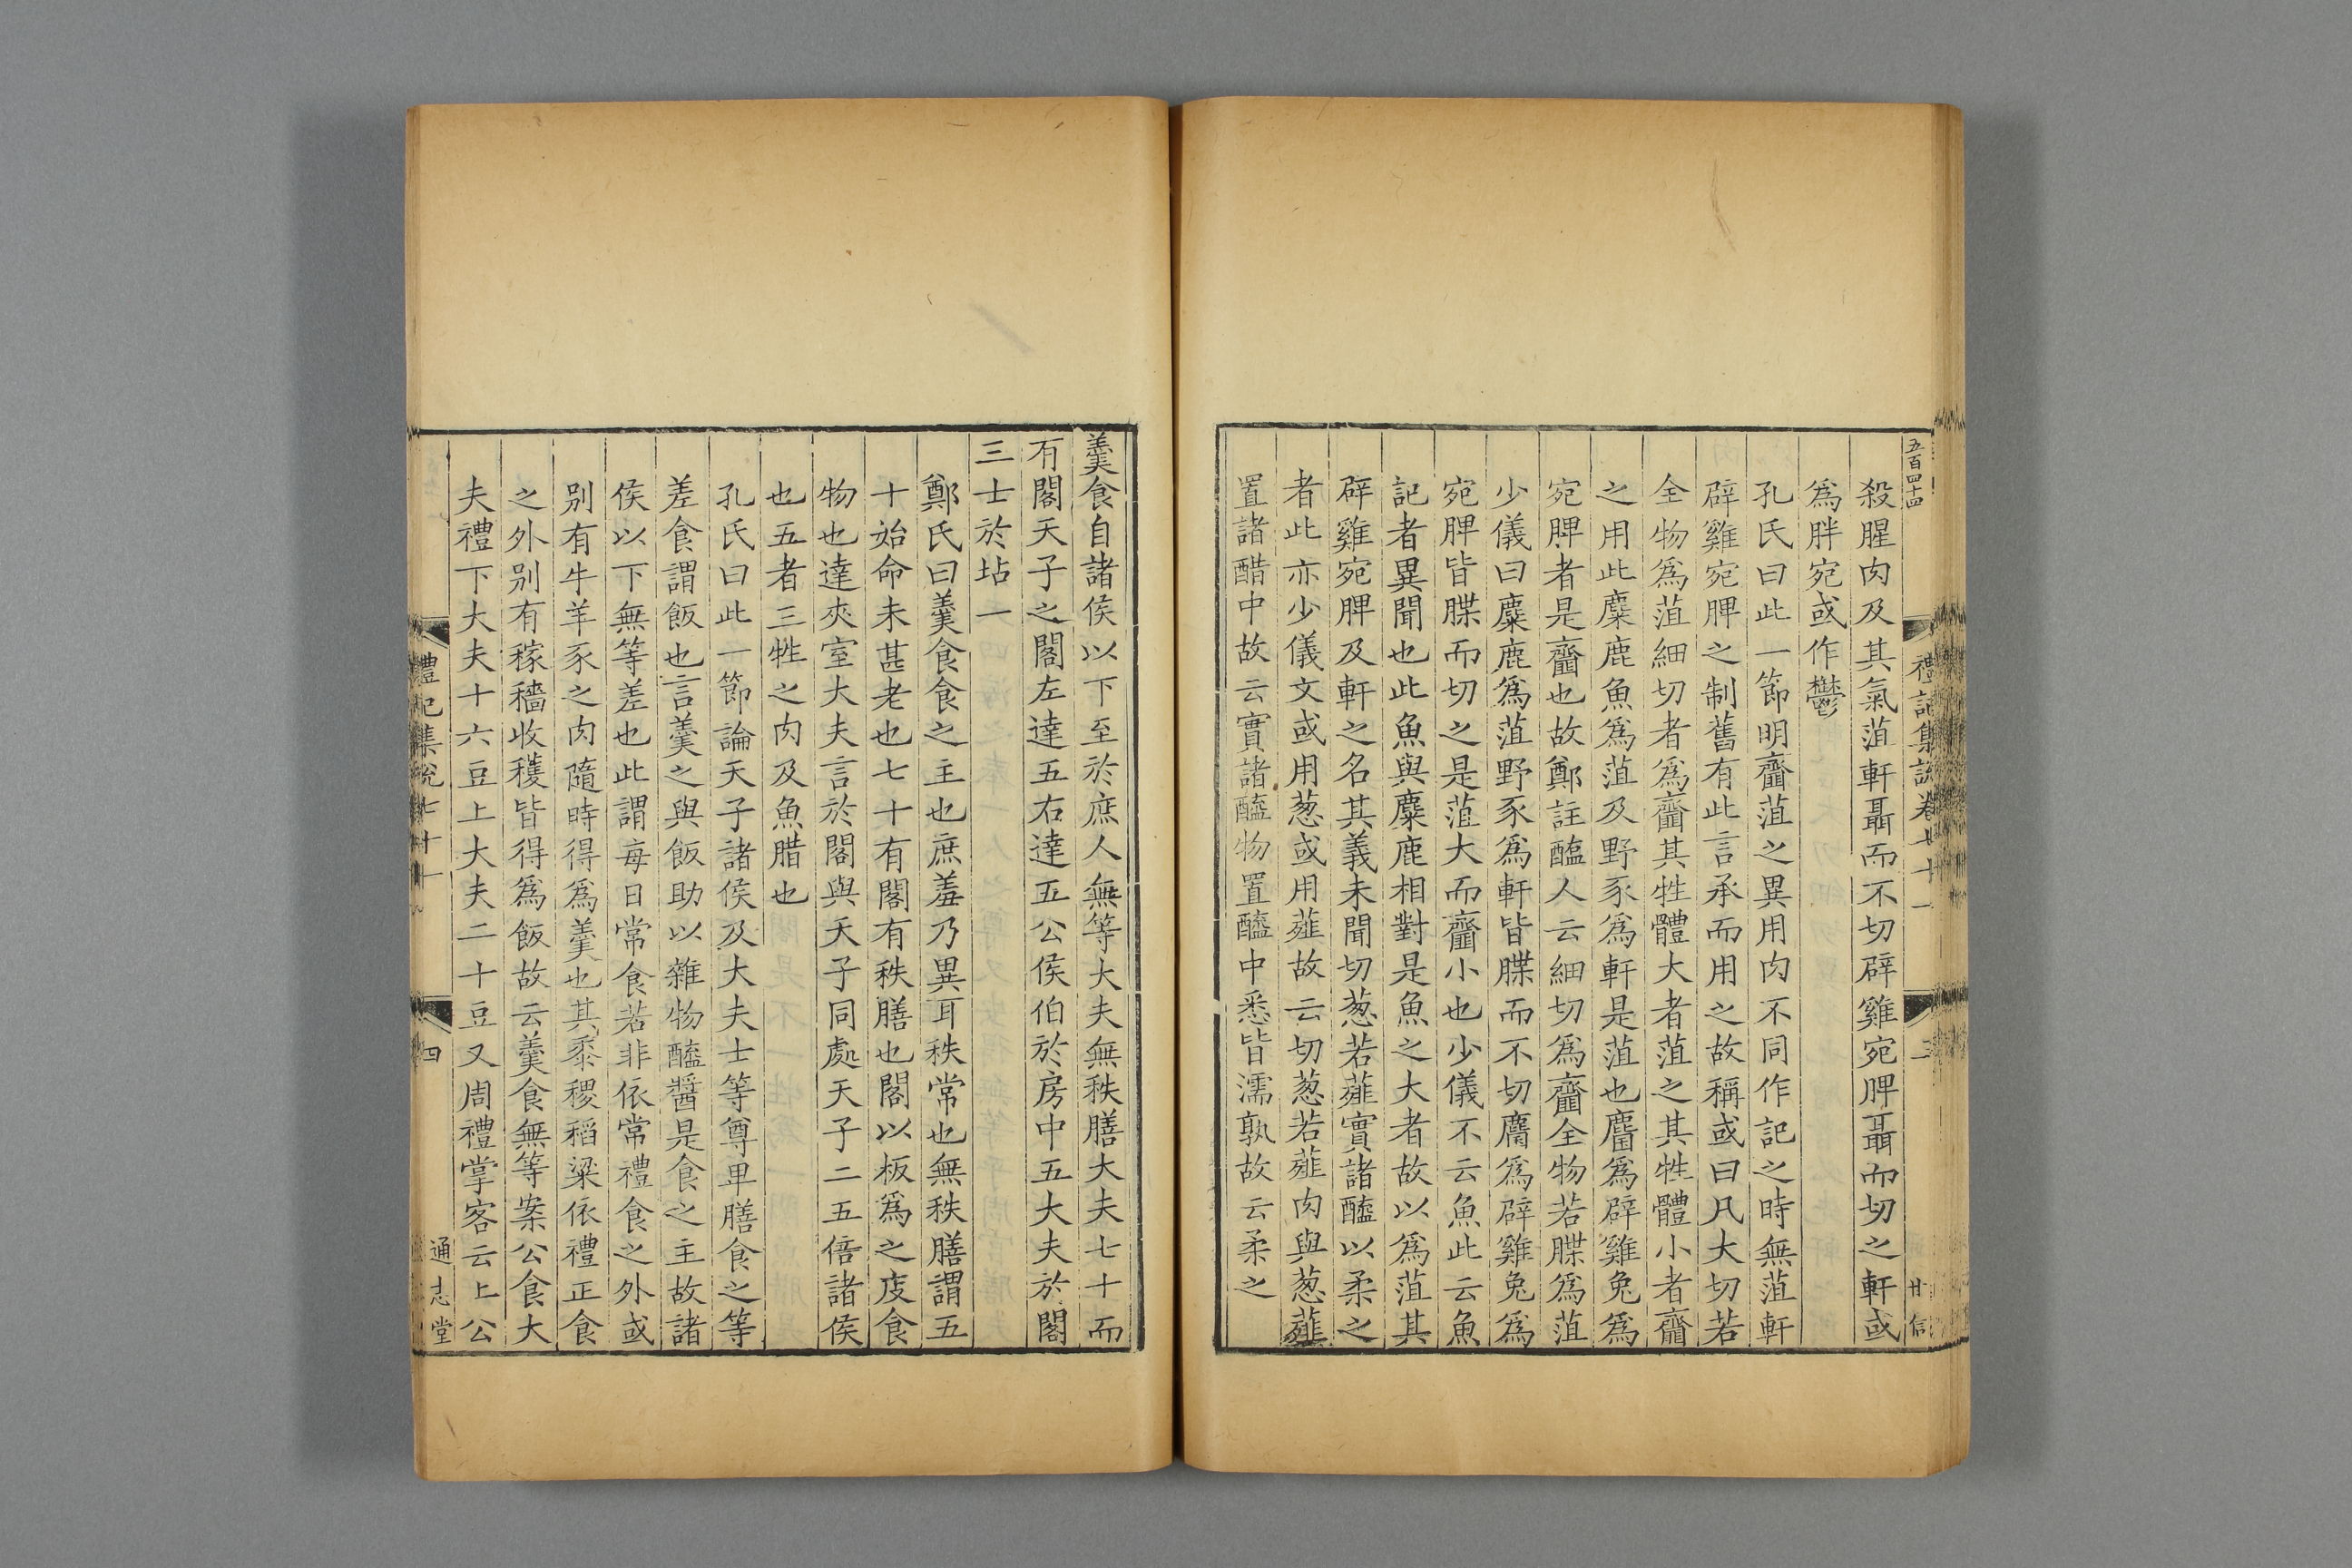 五百四十四
禮記集說卷七十一
三
廿信
殺腥肉及其氣菹軒聶而不切辟雞宛脾聶而切之軒或
爲胖宛或作鬱
孔氏曰此一節明齏菹之異用肉不同作記之時無菹軒
辟雞宛脾之制舊有此言承而用之故稱或曰凡大切若
全物爲菹細切者爲齏其牲體大者菹之其牲體小者齏
之用此麋鹿魚爲菹及野豕爲軒是菹也麕爲辟雞兔爲
宛脾者是齏也故鄭註醢人云細切爲齏全物若䐑爲菹
少儀曰麋鹿爲菹野豕爲軒皆䐑而不切麕爲辟雞兔爲
宛脾皆䐑而切之是菹大而齏小也少儀不云魚此云魚
記者異聞也此魚與麋鹿相對是魚之大者故以爲菹其
辟雞宛脾及軒之名其義未聞切葱若薤實諸醯以柔之
者此亦少儀文或用葱或用薤故云切葱若薤肉與葱薤
置諸醋中故云實諸醯物置醯中悉皆濡孰故云柔之
羹食自諸侯以下至於庶人無等大夫無秩膳大夫七十而
有閣天子之閣左達五右達五公侯伯於房中五大夫於閣
三士於坫一
鄭氏曰羹食食之主也庶羞乃異耳秩常也無秩膳謂五
十始命未甚老也七十有閣有秩膳也閣以板爲之庋食
物也達夾室大夫言於閣與天子同處天子二五倍諸侯
也五者三牲之肉及魚腊也
孔氏曰此一節論天子諸侯及大夫士等尊卑膳食之等
差食謂飯也言羹之與飯助以雜物醯醬是食之主故諸
侯以下無等差也此謂每日常食若非依常禮食之外或
别有牛羊豕之肉隨時得爲羹也其黍稷稻粱依禮正食
之外别有稼穡收穫皆得爲飯故云羹食無等案公食大
夫禮下大夫十六豆上大夫二十豆又周禮掌客云上公
禮記集說七十一
四
通志堂